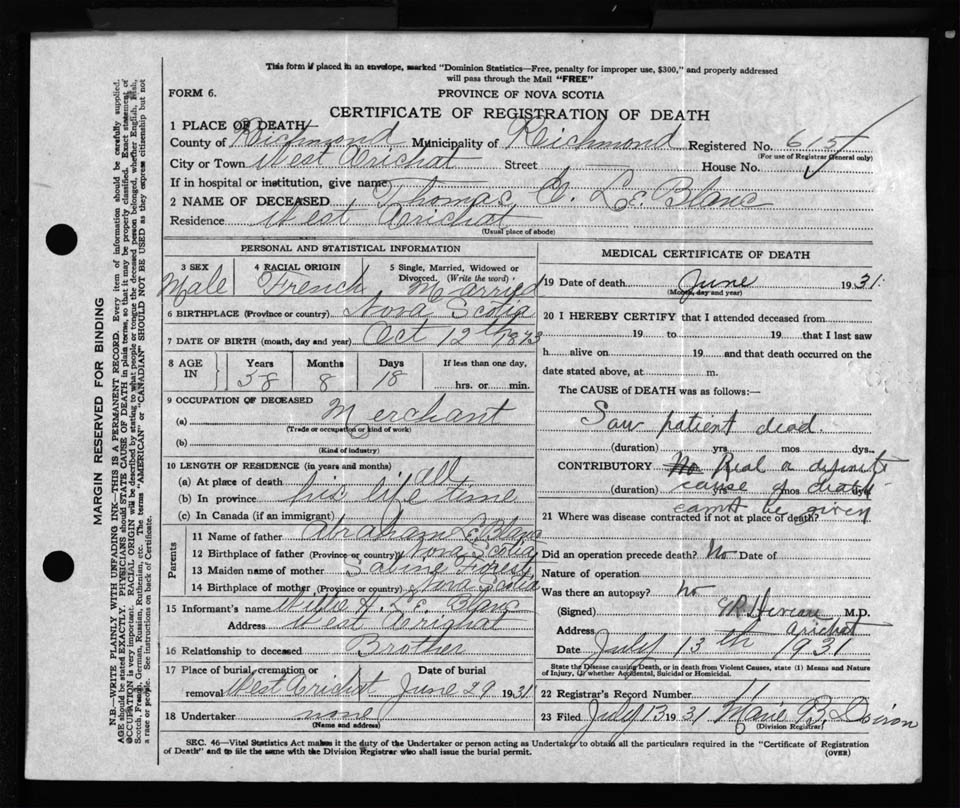 This form if placed in an envelope, marked "Dominion Statistics—Free, penalty for improper use, $300," and properly addressed
will pass through the Mail "FREE"
FORM 6. PROVINCE OF NOVA SCOTIA
CERTIFICATE OF REGISTRATION OF DEATH
1 PLACE OF DEATH
County of Richmond Municipality of Richmond Registered No. 615
(For use of Registrar General only)
City or Town West Arichat Street House No.
If in hospital or institution, give name
2 NAME OF DECEASED Thomas LeBlanc
Residence West Arichat
(Usual place of abode)
PERSONAL AND STATISTICAL INFORMATION
3 SEX Male 4 RACIAL ORIGIN French 5 Single, Married, Widowed or Divorced. (Write the word) Married
6 BIRTHPLACE (Province or country) Nova Scotia
7 DATE OF BIRTH (month, day and year) Oct 12th 1873
8 AGE IN Years 58 Months 8 Days 18 If less than one day, hrs. or min.
9 OCCUPATION OF DECEASED
(a) Merchant
(Trade or occupation or kind of work)
(b)
(Kind of industry)
10 LENGTH OF RESIDENCE (in years and months)
(a) At place of death all
(b) In province his life time
(c) In Canada (if an immigrant)
Parents
11 Name of father Abraham LeBlanc
12 Birthplace of father (Province or country) Nova Scotia
13 Maiden name of mother Sabine Forest
14 Birthplace of mother (Province or country) Nova Scotia
15 Informant's name Willie A. Le Blanc
Address West Arichat
16 Relationship to deceased Brother
17 Place of burial, cremation or removal West Arichat Date of burial June 29 1931
18 Undertaker none
(Name and address)
MEDICAL CERTIFICATE OF DEATH
19 Date of death June 1931
(Month, day and year)
20 I HEREBY CERTIFY that I attended deceased from
19 to 19 that I last saw
h alive on 19 and that death occurred on the
date stated above, at m.
The CAUSE of DEATH was as follows:
Saw patient dead.
(duration) yrs mos dys.
CONTRIBUTORY No Real or definite
(duration) yrs mos dys
cause of death
cannot be given
21 Where was disease contracted if not at place of death?
Did an operation precede death? No Date of
Nature of operation
Was there an autopsy? no
(Signed) M.D.
Address Arichat
Date July 13th 1931
State the Disease causing Death, or in death from Violent Causes, state (1) Means and Nature
of Injury, (2) whether Accidental, Suicidal or Homicidal.
22 Registrar's Record Number 11
23 Filed July 13 1931 Marie B. Doiron
(Division Registrar)
SEC. 46—Vital Statistics Act makes it the duty of the Undertaker or person acting as Undertaker to obtain all the particulars required in the "Certificate of Registration
of Death" and to file the same with the Division Registrar who shall issue the burial permit. (OVER)
MARGIN RESERVED FOR BINDING
N.B.—WRITE PLAINLY WITH UNFADING INK—THIS IS A PERMANENT RECORD. Every item of information should be carefully supplied.
AGE should be stated EXACTLY. PHYSICIANS should STATE CAUSE OF DEATH in plain terms, so that it may be properly classified. Exact statement of
OCCUPATION is very important. RACIAL ORIGIN will be described by stating to what people or tongue the deceased person belonged, whether English, Irish,
Scotch, French, German, Russian, Ruthenian, etc. The terms "AMERICAN" or "CANADIAN" SHOULD NOT BE USED as they express citizenship but not
a race or people. See instructions on back of Certificate.